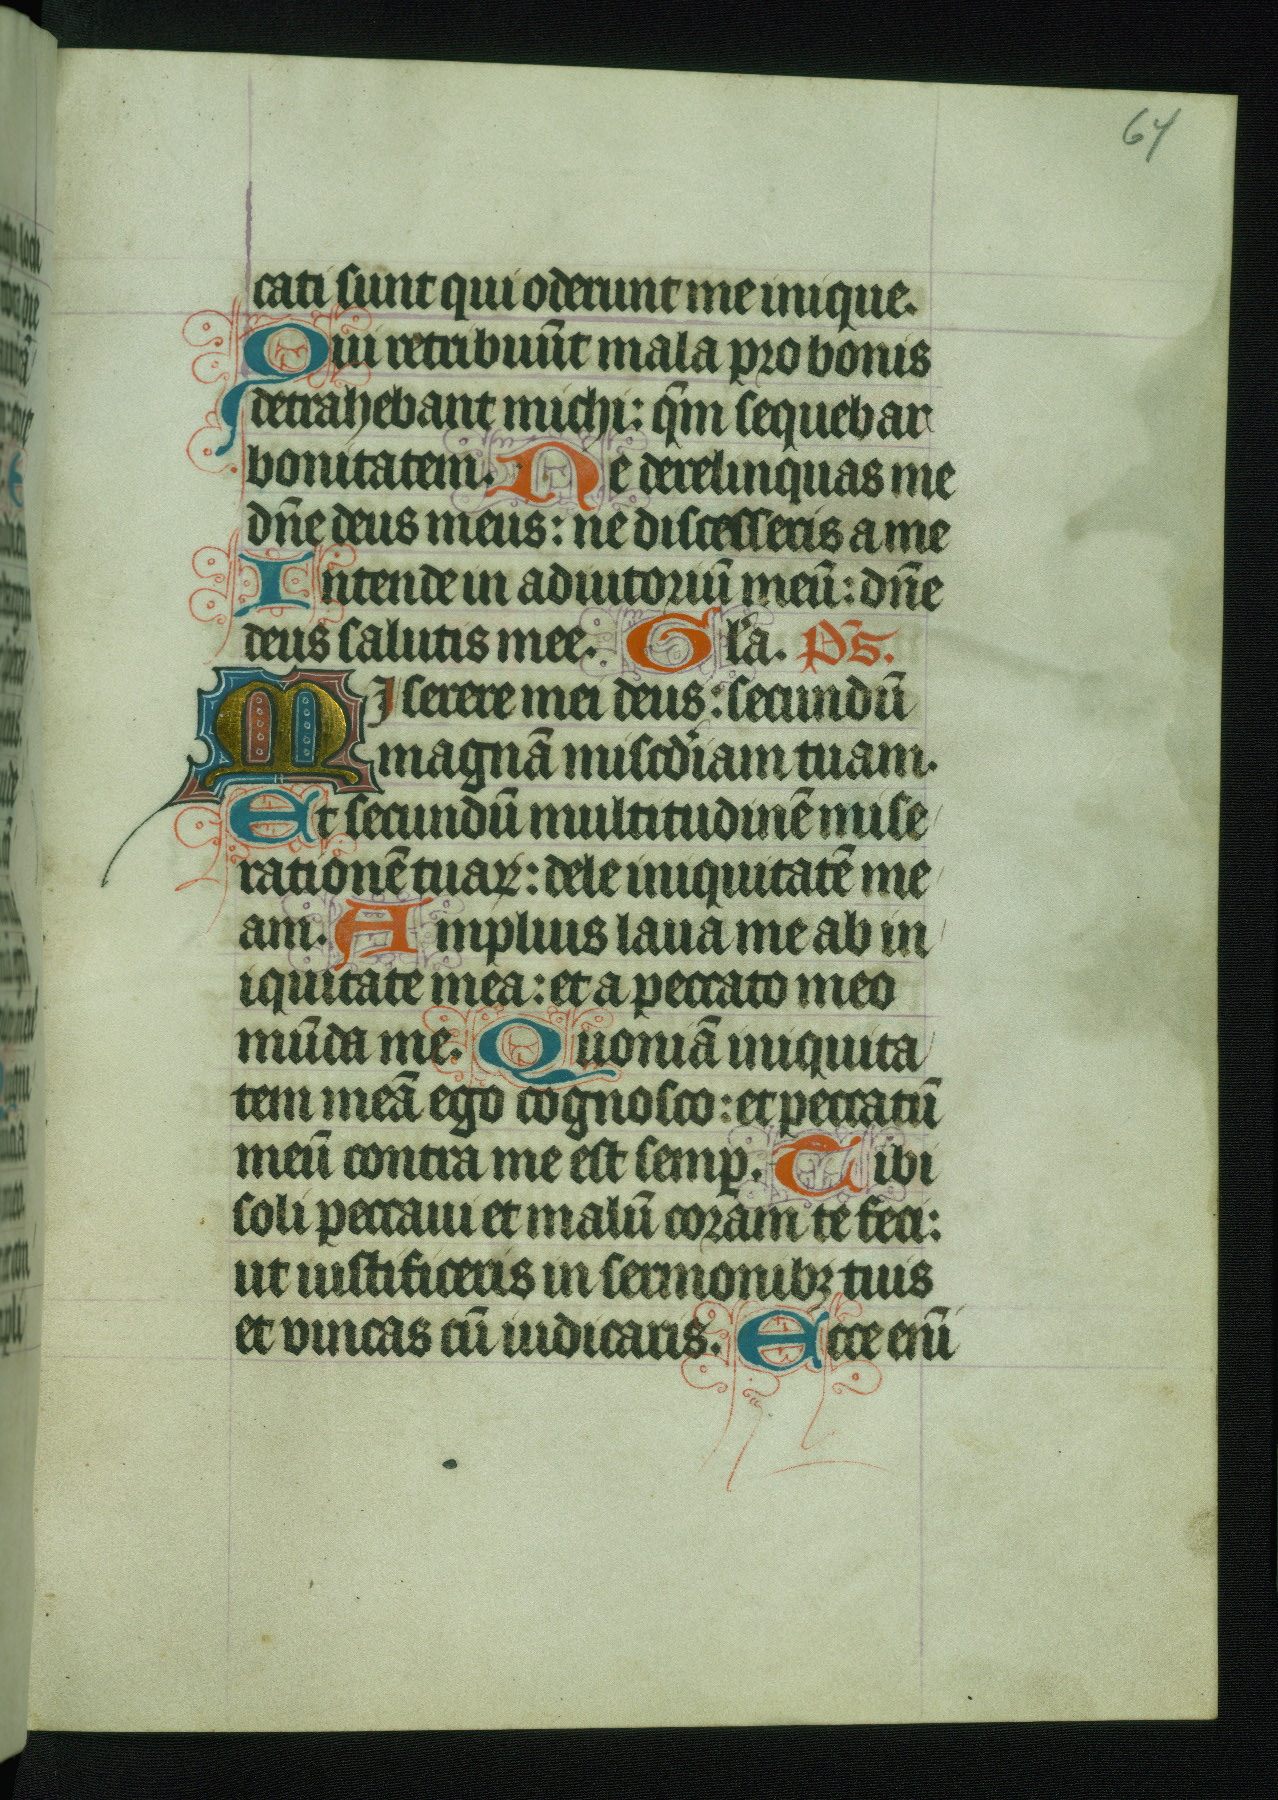 64
cati sunt qui oderunt me inique.
Qui retribuūt mala pro bonis
detrahebant michi: qm̄ sequebar
bonitatem. Ne derelinquas me
dn̄e deus meus: ne discesseris a me
Intende in adiutoriū meū: dn̄e
deus salutis mee. Gl'a. Ps̄.
Miserere mei deus: secundū
magnā misc̄diam tuam.
Et secundū multitudinē mise
rationē tuaꝝ: dele iniquitatē me
am. Amplius laua me ab in
iquitate mea: et a peccato meo
mūda me. Quoniā iniquita
tem meā ego cognosco: et peccatū
meū contra me est semp̱. Tibi
soli peccaui et malū coram te feci:
ut iustificeris in sermonibꝫ tuis
et vincas cū iudicaris. Ecce eni̅